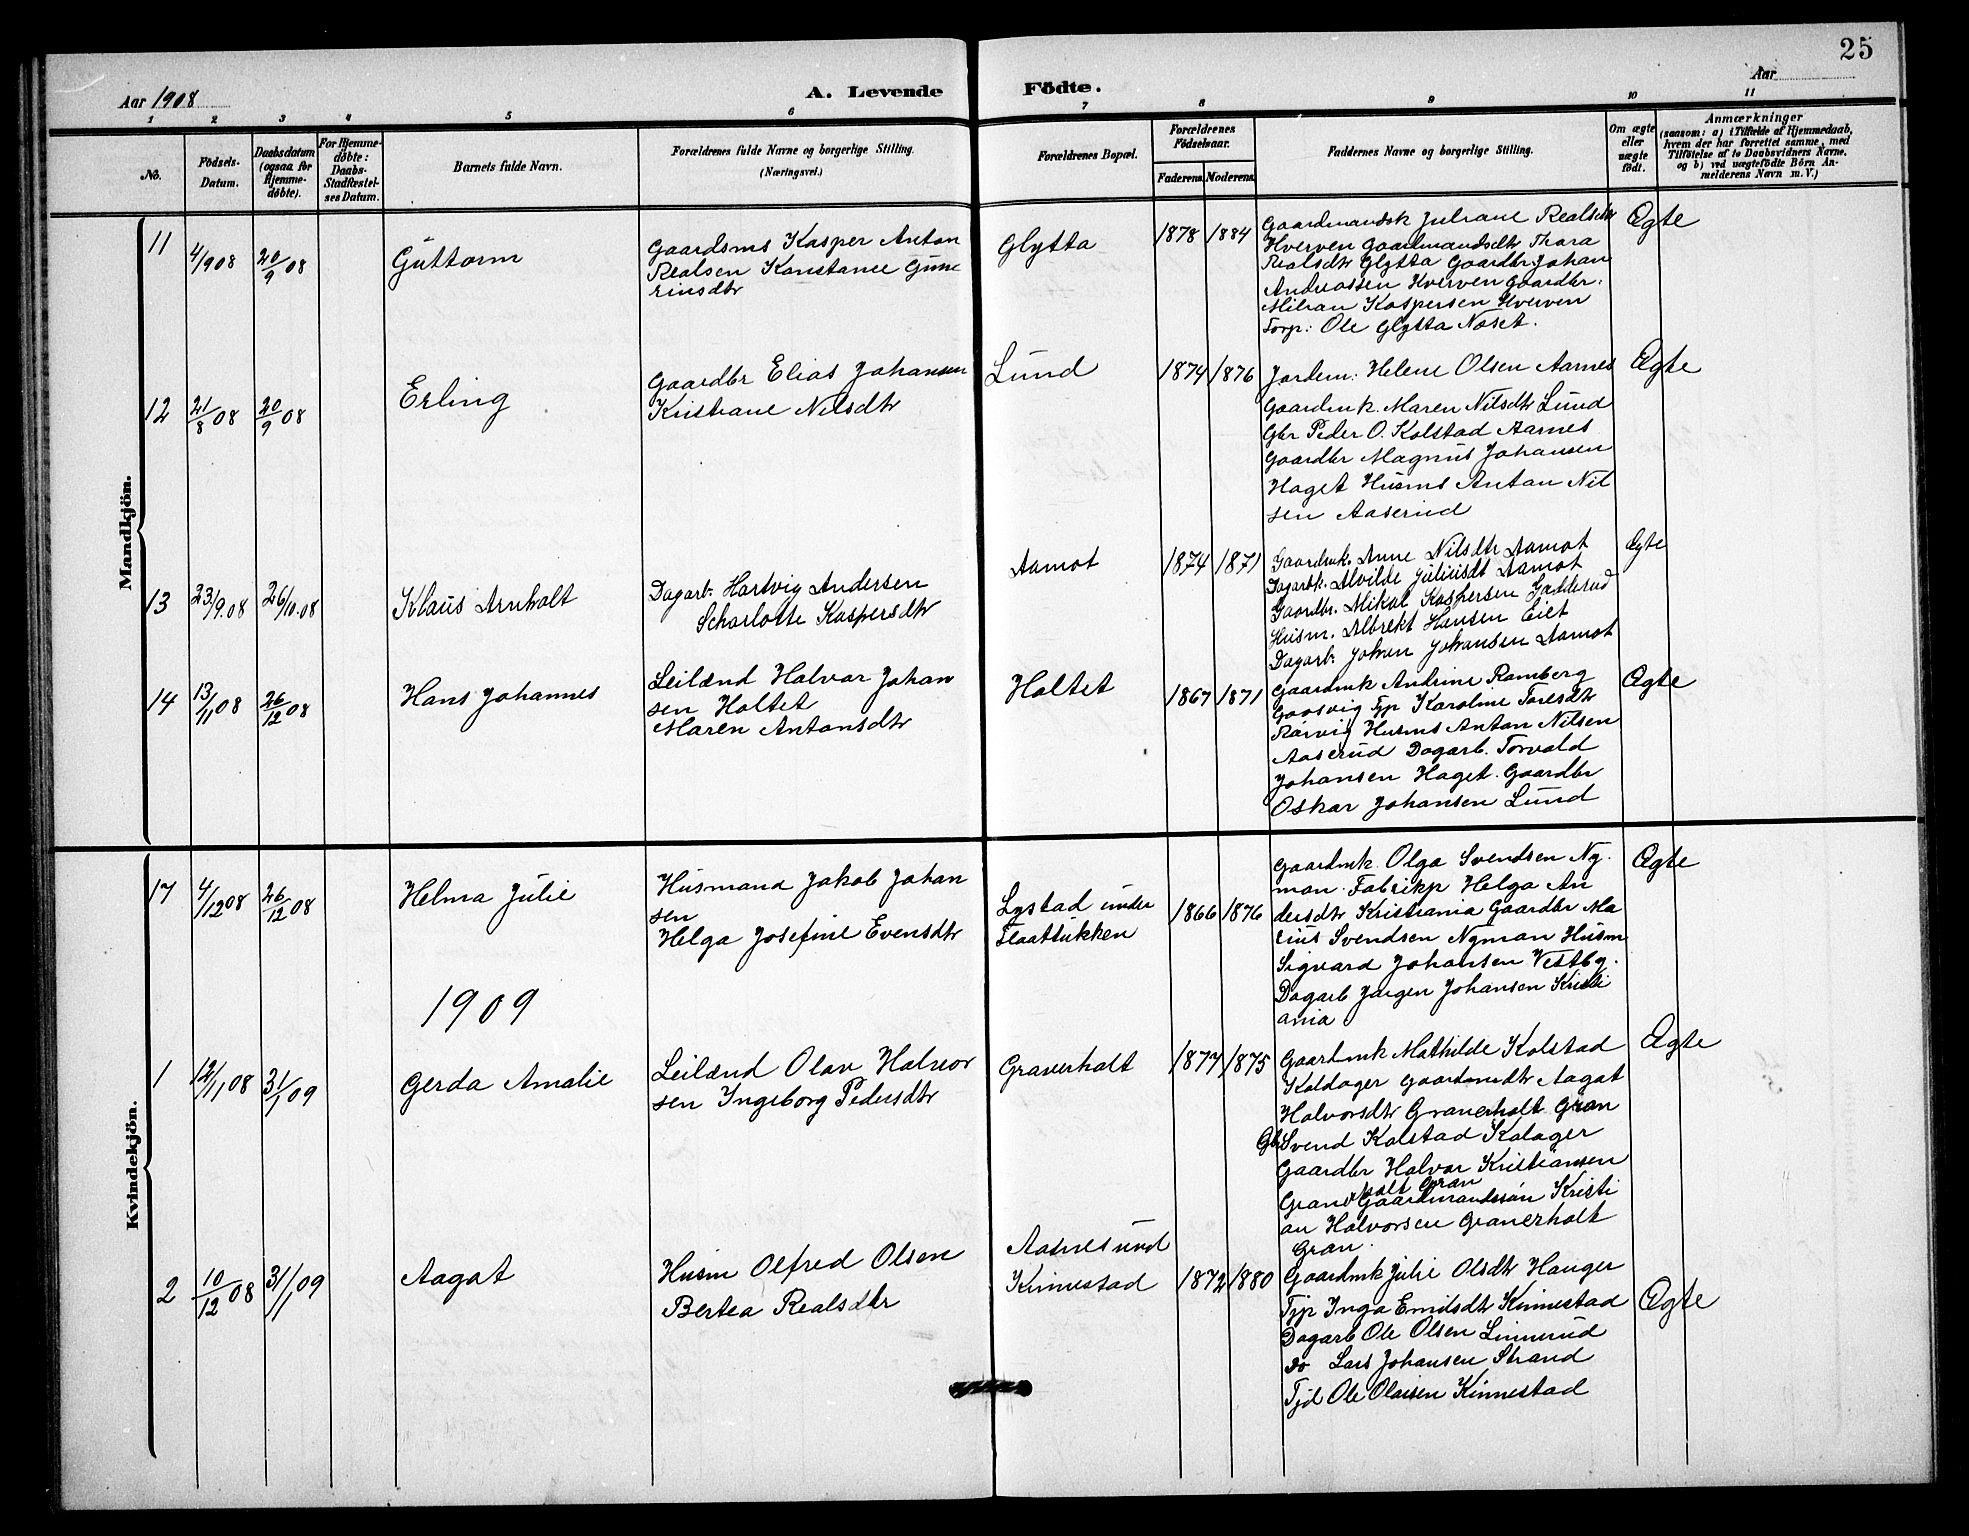 25
Aar 1908
A. Levende
Födte.
Aar
1 2 3 4 5 6 7 8 9 10 11
No.
Födsels-Datum.
Daabsdatum (ogsaa for Hjemme-döbte).
For Hjemme-döbte: Daabs-Stadfæstel-ses Datum.
Barnets fulde Navn.
Forældrenes fulde Navne og borgerlige Stilling. (Næringsvei.)
Forældrenes Bopæl.
Forældrenes Födselsaar.
Faderens. Moderens.
Faddernes Navne og borgerlige Stilling.
Om ægte eller uægte födt.
Anmærkninger
(saasom: a) i Tilfælde af Hjemmedaab,
hvem der har forrettet samme, med
Tilföielse af to Daabsvidners Navne,
og b) ved uægtefödte Börn An-
melderens Navn m. V.)
Mandkjön.
11 4/9 08 20/9 08 Guttorm
Gaardsms Kasper Anton
Realsen Konstance Gune
riusdtr
Glytta 1878 1884
Gaardmandsk Juliane Realsdtr
Hverven Gaardmandsdtr Thora
Realsdtr Glytta Gaardbr. Johan
Andreassen Hverven Gaardbr.
Milian Kaspersen Hverven
Forp: Ole Glytta Næset.
Ægte
12 21/8 08 20/9 08 Erling
Gaardbr Elias Johansen
Kristiane Nilsdtr
Lund 1874 1876
Jordem: Helene Olsen Aarnes
Gaardmk. Maren Nilsdtr Lund
Gbr Peder O. Kolstad Aarnes
Gaardbr Magnus Johansen
Haget Husms Anton Nil
sen Aaserud
Ægte
13 23/9.08 26/10.08 Klaus Arnholt
Dagarb. Hartvig Andersen
Scharlotte Kaspersdtr
Aamot 1874 1871
Gaardmk. Anne Nilsdtr Aamot
Dagarbk. Alvilde Juliusdt Aamot
Gaardbr. Mikal Kaspersen Gadderud
Husm. Albrekt Hansen Eiet
Dagarb. Johan Johansen Aamot
Ægte
14 13/11 08 26/12 08 Hans Johannes
Leilænd Halvar Johan
sen Holtet
Maren Antonsdtr
Holtet 1867 1871
Gaardmk Andrine Ramberg
Gaasvig Tjp Karoline Toresdtr
Rørvig Husms Anton Nilsen
Aaserud Dagarb. Torvald
Johansen Haget. Gaardbr
Oskar Johansen Lund
Ægte
Kvindekjön.
17 4/12 08 26/12 08 Helma Julie
Husmand Jakob Johan
sen
Helga Josefine Evensdtr
Lystad under
Slaattukken
1866 1876
Gaardmk. Olga Svendsen Ny-
man. Fabrikp Helga An
dersdtr Kristiania Gaardbr Ma
rius Svendsen Nyman Husm
Sigvard Johansen Vestby.
Dagarb Jørgen Johansen Kristi
ania
Ægte
1909
1 12/11 08 31/1 09 Gerda Amalie
Leilænd Olav Halvor
sen Ingeborg Pedersdtr
Graverholt 1877 1875
Gaardmk Mathilde Kolstad
Koldager Gaardsmdtr Aagat
Halvorsdtr Granerholt Gran
Gbr Svend Kolstad Kolager
Gaardbr Halvor Kristiansen
Granerholt Gran
Gaardmandssøn Kristi
an Halvorsen Granerholt
Gran.
Ægte
2 10/12 08 31/1 09 Aagot
Husm Olfred Olsen
Bertea Realsdtr
Aasnesund
Kinnestad 1872 1880
Gaardmk Julie Olsdtr Hauger
Tjp Inga Emilsdtr Kinnestad
Dagarb Ole Olsen Linnerud
Do Lars Johansen Strand
Tjd Ole Olaisen Kinnestad
Ægte